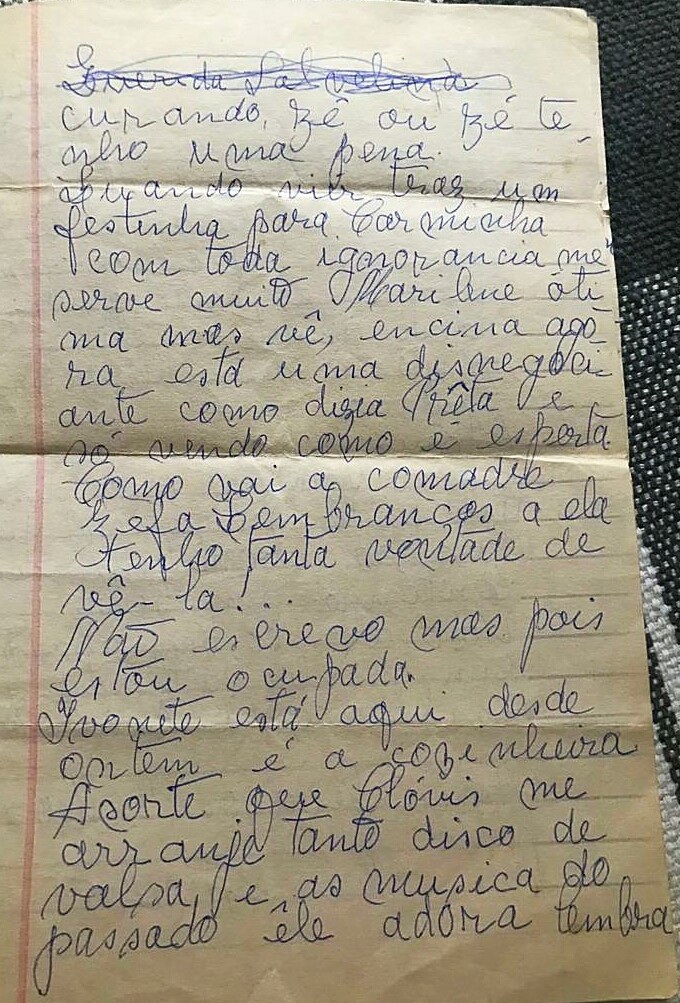 Querida Salvelina
curando, Zê ou Zé te-
nho uma pena.
Quando vier traz um
festinha para Carminha
com toda ignorancia me
serve muito Marilene óti-
ma mas vê, encina ago-
ra está uma disnegoci
ante como dizia Prêta e
só vendo como é esperta.
Como vai a comadre
Zefa Lembranças a ela
tenho tanta vontade de
vê-la!...
Não escrevo mas pois
estou ocupada.
Ivonete está aqui desde
ontem é a cozinheira
A sorte que Clóvis me
arranje tanto disco de
valsa, e as musica do
passado êle adora lembra